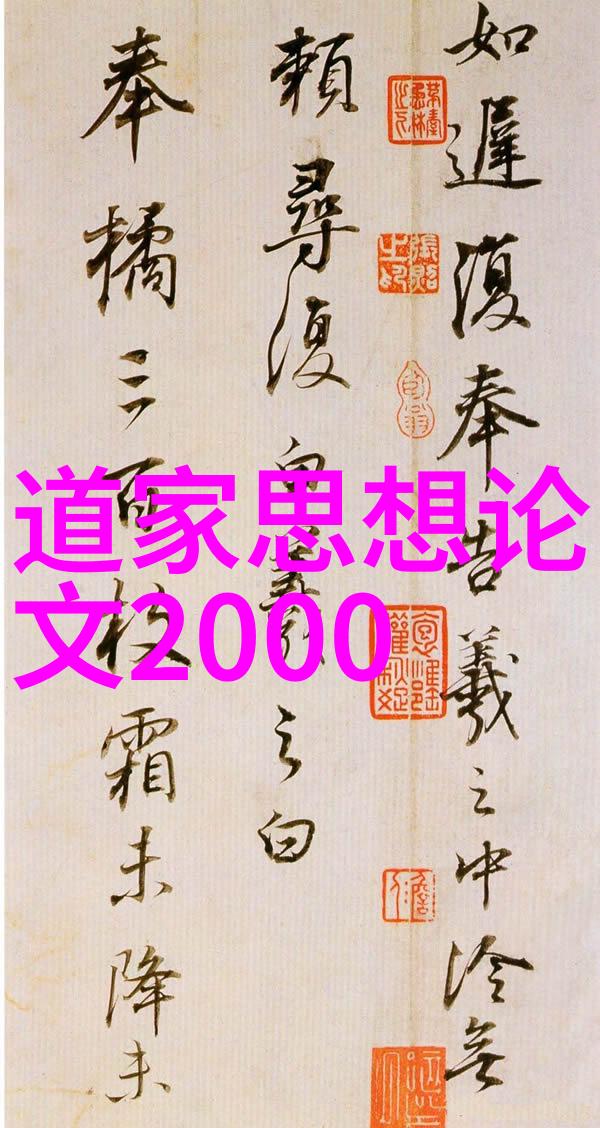 道家思想论
文2000
如遲復奉告羲之中冷無
賴尋復白羲之白
奉橘三百枚霜未降未